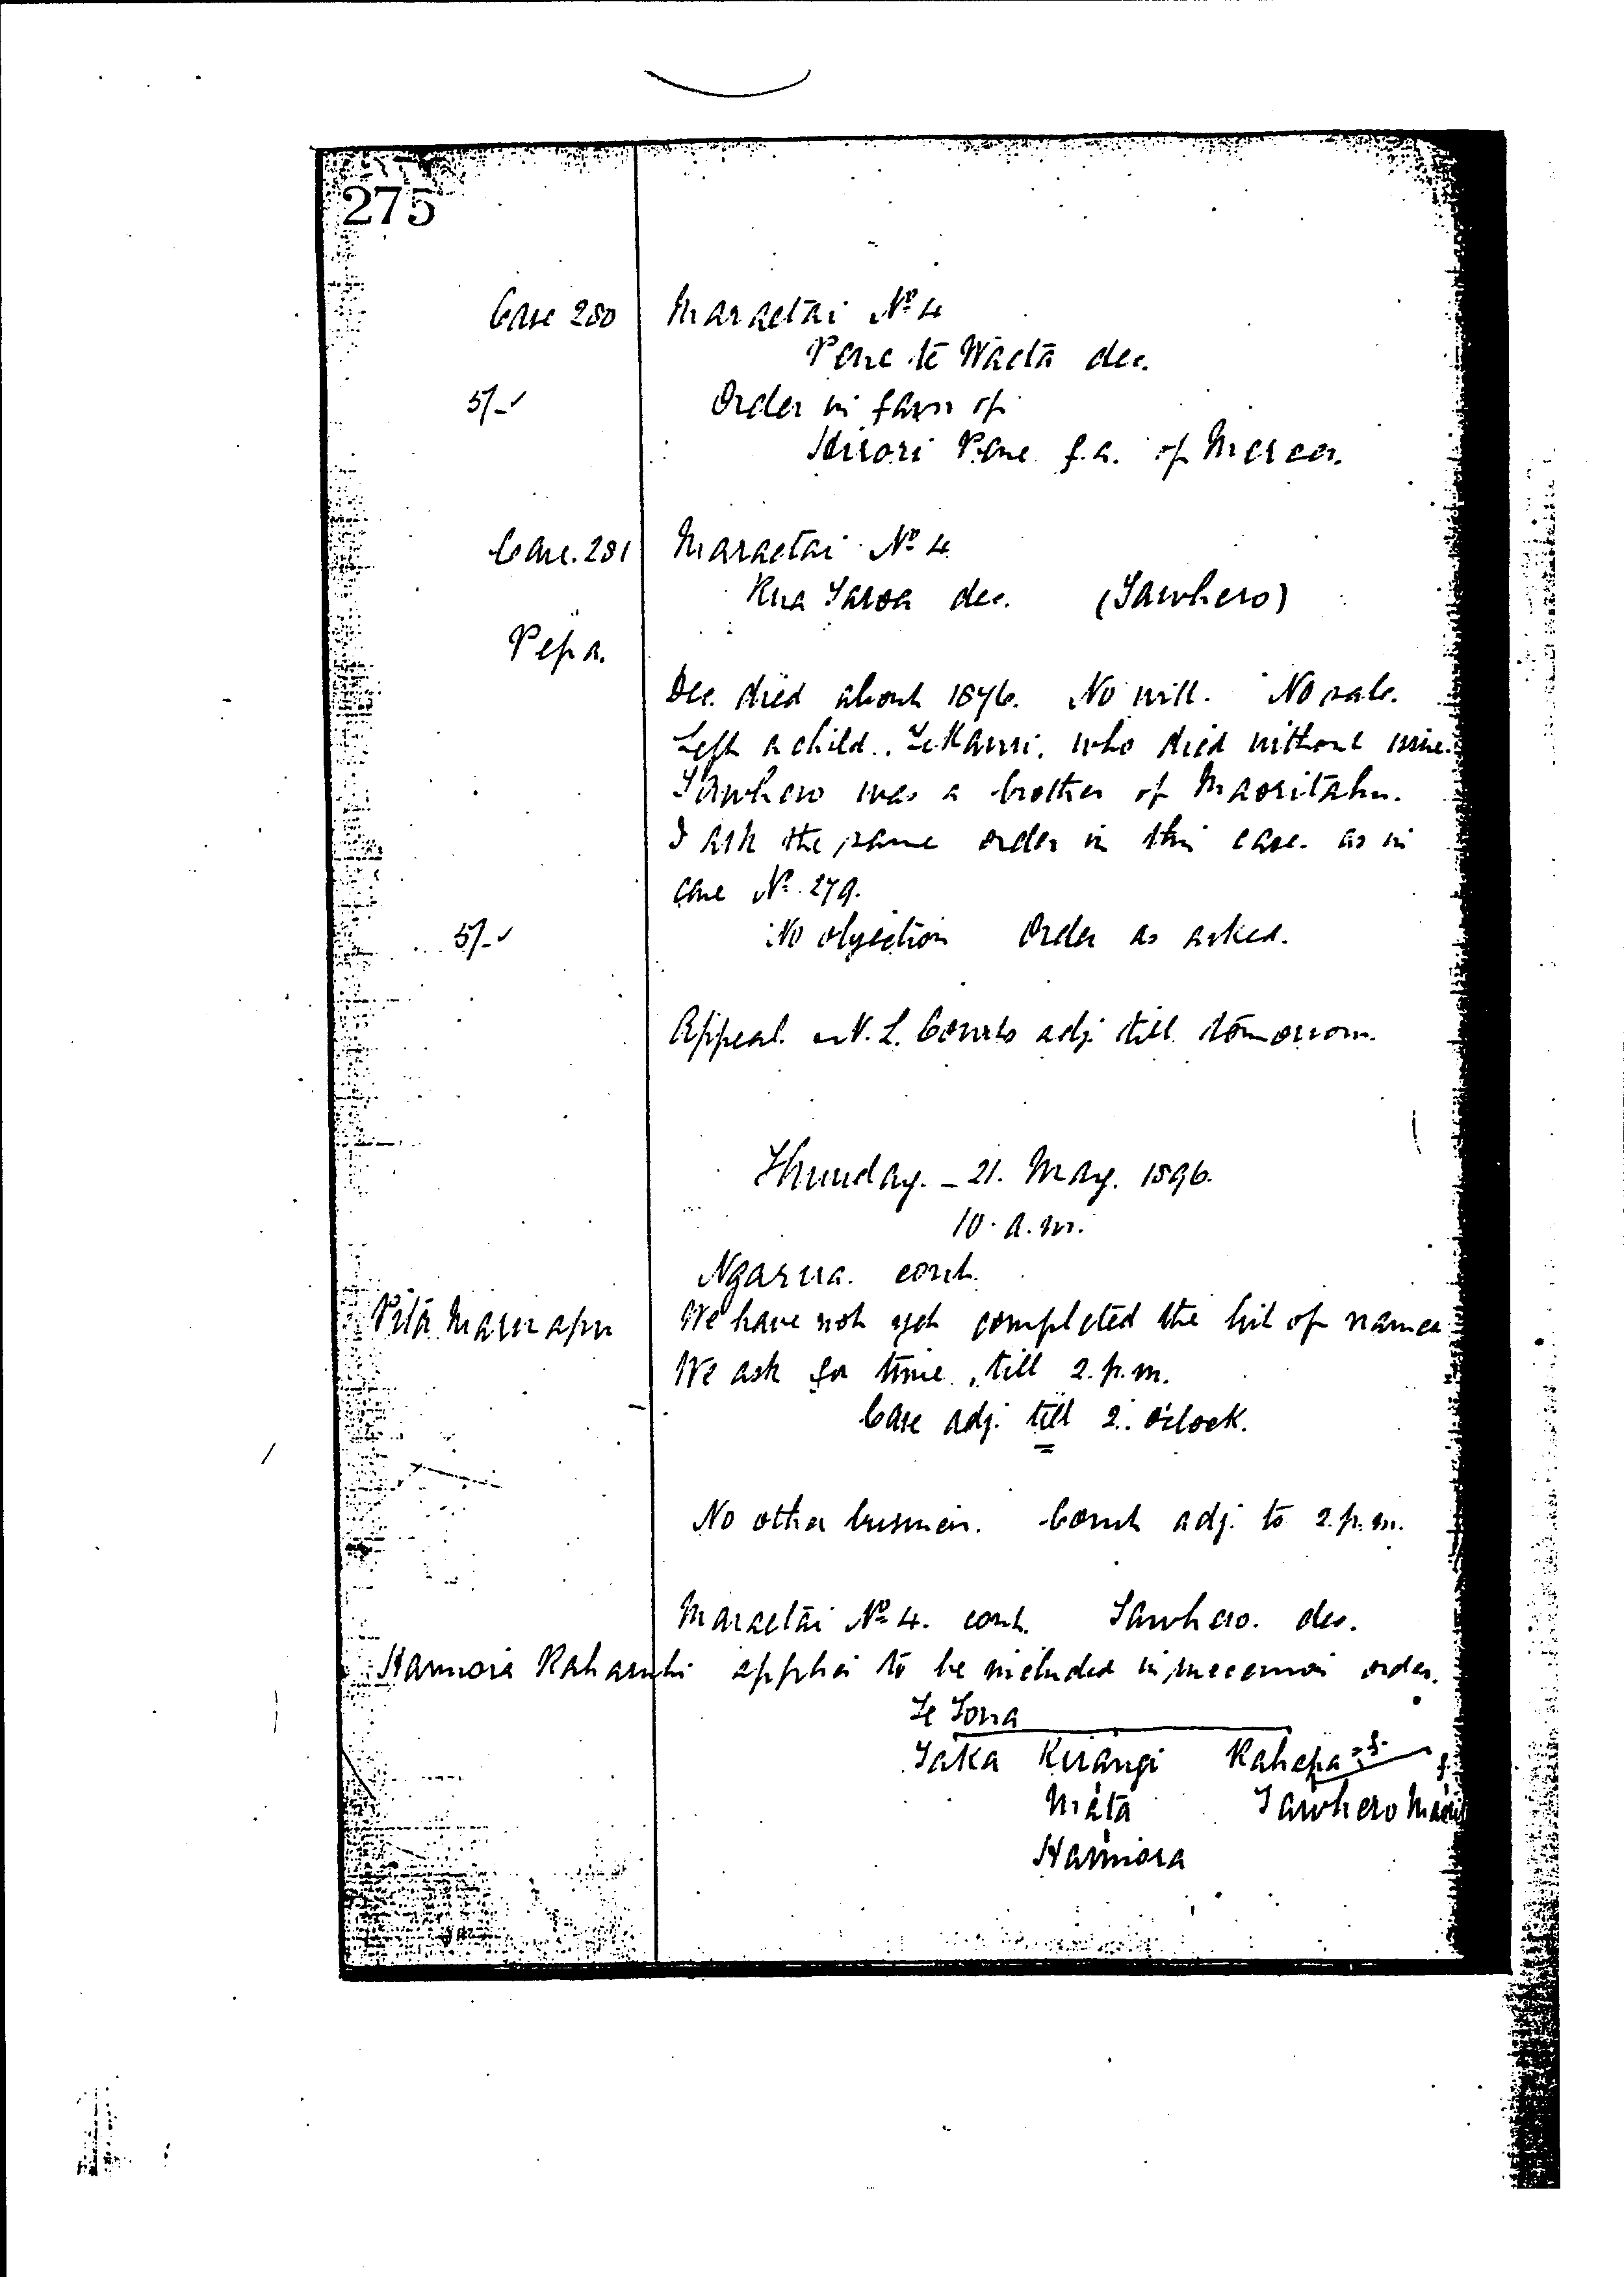 275
Case 280 Maraetai No 4
Pene te Waeta dec.
5/- ✓ Order in favr of
Hirori Pene f.a. of Mercer.
Case. 281 Maraetai No 4
Rua Taroa dec. (Tawhero)
Pepa.
Dec. died about 1876. No will. No sale.
Left a child. , who died without issue.
Tawhero was a brother of Maoritahu.
I ask the same order in this case. as in
case No 279.
5/- ✓ No objection Order as asked.
Appeal. N. L. Courts adj. till tomorrow.
Thursday. - 21. May. 1896.
10. a.m.
Ngarua. cont.
We have not yet completed the list of names
We ask for time, till 2. p.m.
Case adj. till 2. o'clock.
No other business. Court adj. to 2. p.m.
Maraetai No 4. cont. Tawhero. dec.
Hamiora applies to be included in succession order.
Te Tona
Taka Kirangi Rahepa = f.
Mata Tawhero
Hamiora